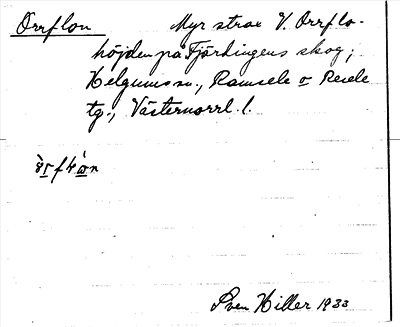 Orrflon Myr strax V. Orrflo-
höjden på Fjördingens skog;
Helgums sn., Ramsele o Resele
tg., Västernorrl. l.
Sven Hiller 1933